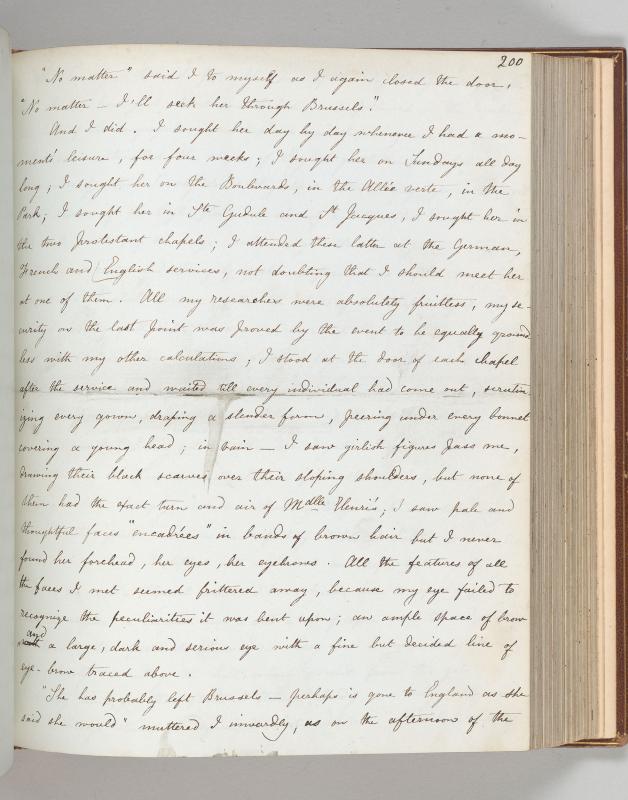 200
"No matter" said I to myself as I again closed the door,
"No matter — I'll seek her through Brussels".
And I did. I sought her day by day whenever I had a mo-
ment's leisure, for four weeks; I sought her on Sundays all day
long; I sought her on the Boulevards, in the Allée verte, in the
Park; I sought her in Ste Gudule and St Jacques, I sought her in
the two Protestant chapels; I attended these latter at the German,
French and English services, not doubting that I should meet her
at one of them. All my researches were absolutely fruitless, my se-
curity on the last point was proved by the event to be equally ground
less with my other calculations; I stood at the door of each chapel
after the service and waited till every individual had come out, scrutin
izing every gown, draping a slender form, peering under every bonnet
covering a young head; in vain — I saw girlish figures pass me,
drawing their black scarves over their sloping shoulders, but none of
them had the exact turn and air of Mdlle Henri's; I saw pale and
thoughtful faces "encadrées" in bands of brown hair but I never
found her forehead, her eyes, her eyebrows. All the features of all
the faces I met seemed frittered away, because my eye failed to
recognize the peculiarities it was bent upon; an ample space of brow
and a large, dark and serious eye with a fine but decided line of
eye-brow traced above.
"She has probably left Brussels — perhaps is gone to England as she
said she would" muttered I inwardly, as on the afternoon of the